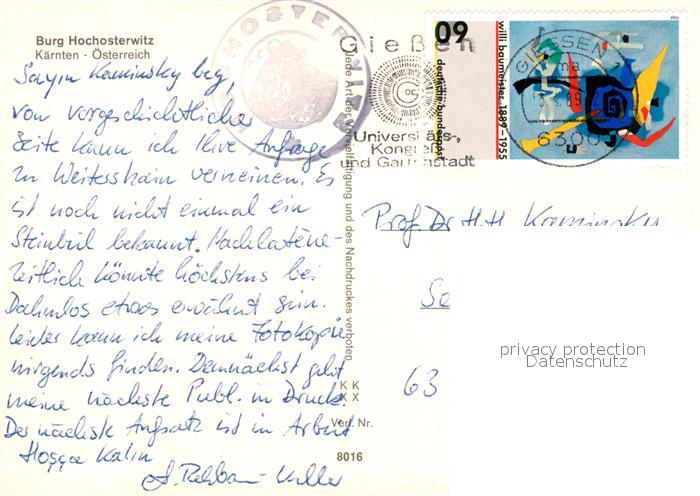 Burg Hochosterwitz
Kärnten - Österreich
HOSTERWITZ
Sayın Kaminsky bey,
von vorgeschichtlicher
Seite kann ich Ihre Anfrage
zu Weitershain verneinen. Es
ist noch nicht einmal ein
Steinbeil bekannt. Nachlatène-
zeitlich könnte höchstens bei
Dahmlos etwas erwähnt sein.
Leider kann ich meine Fotokopie
nirgends finden. Demnächst geht
meine nächste Publ. in Druck.
Der nächste Aufsatz ist in Arbeit
Hoşça Kalın
Jede Art der Vervielfältigung und des Nachdruckes verboten
K K
X X
Verl. Nr.
8016
Gießen
Universitäts-,
Kongreß-
und Gartenstadt
60
deutsche bundespost
willi baumeister, 1889-1955
GIESSEN 1
6300
Prof. Dr. H. H. Kaminsky
Se
63
privacy protection
Datenschutz